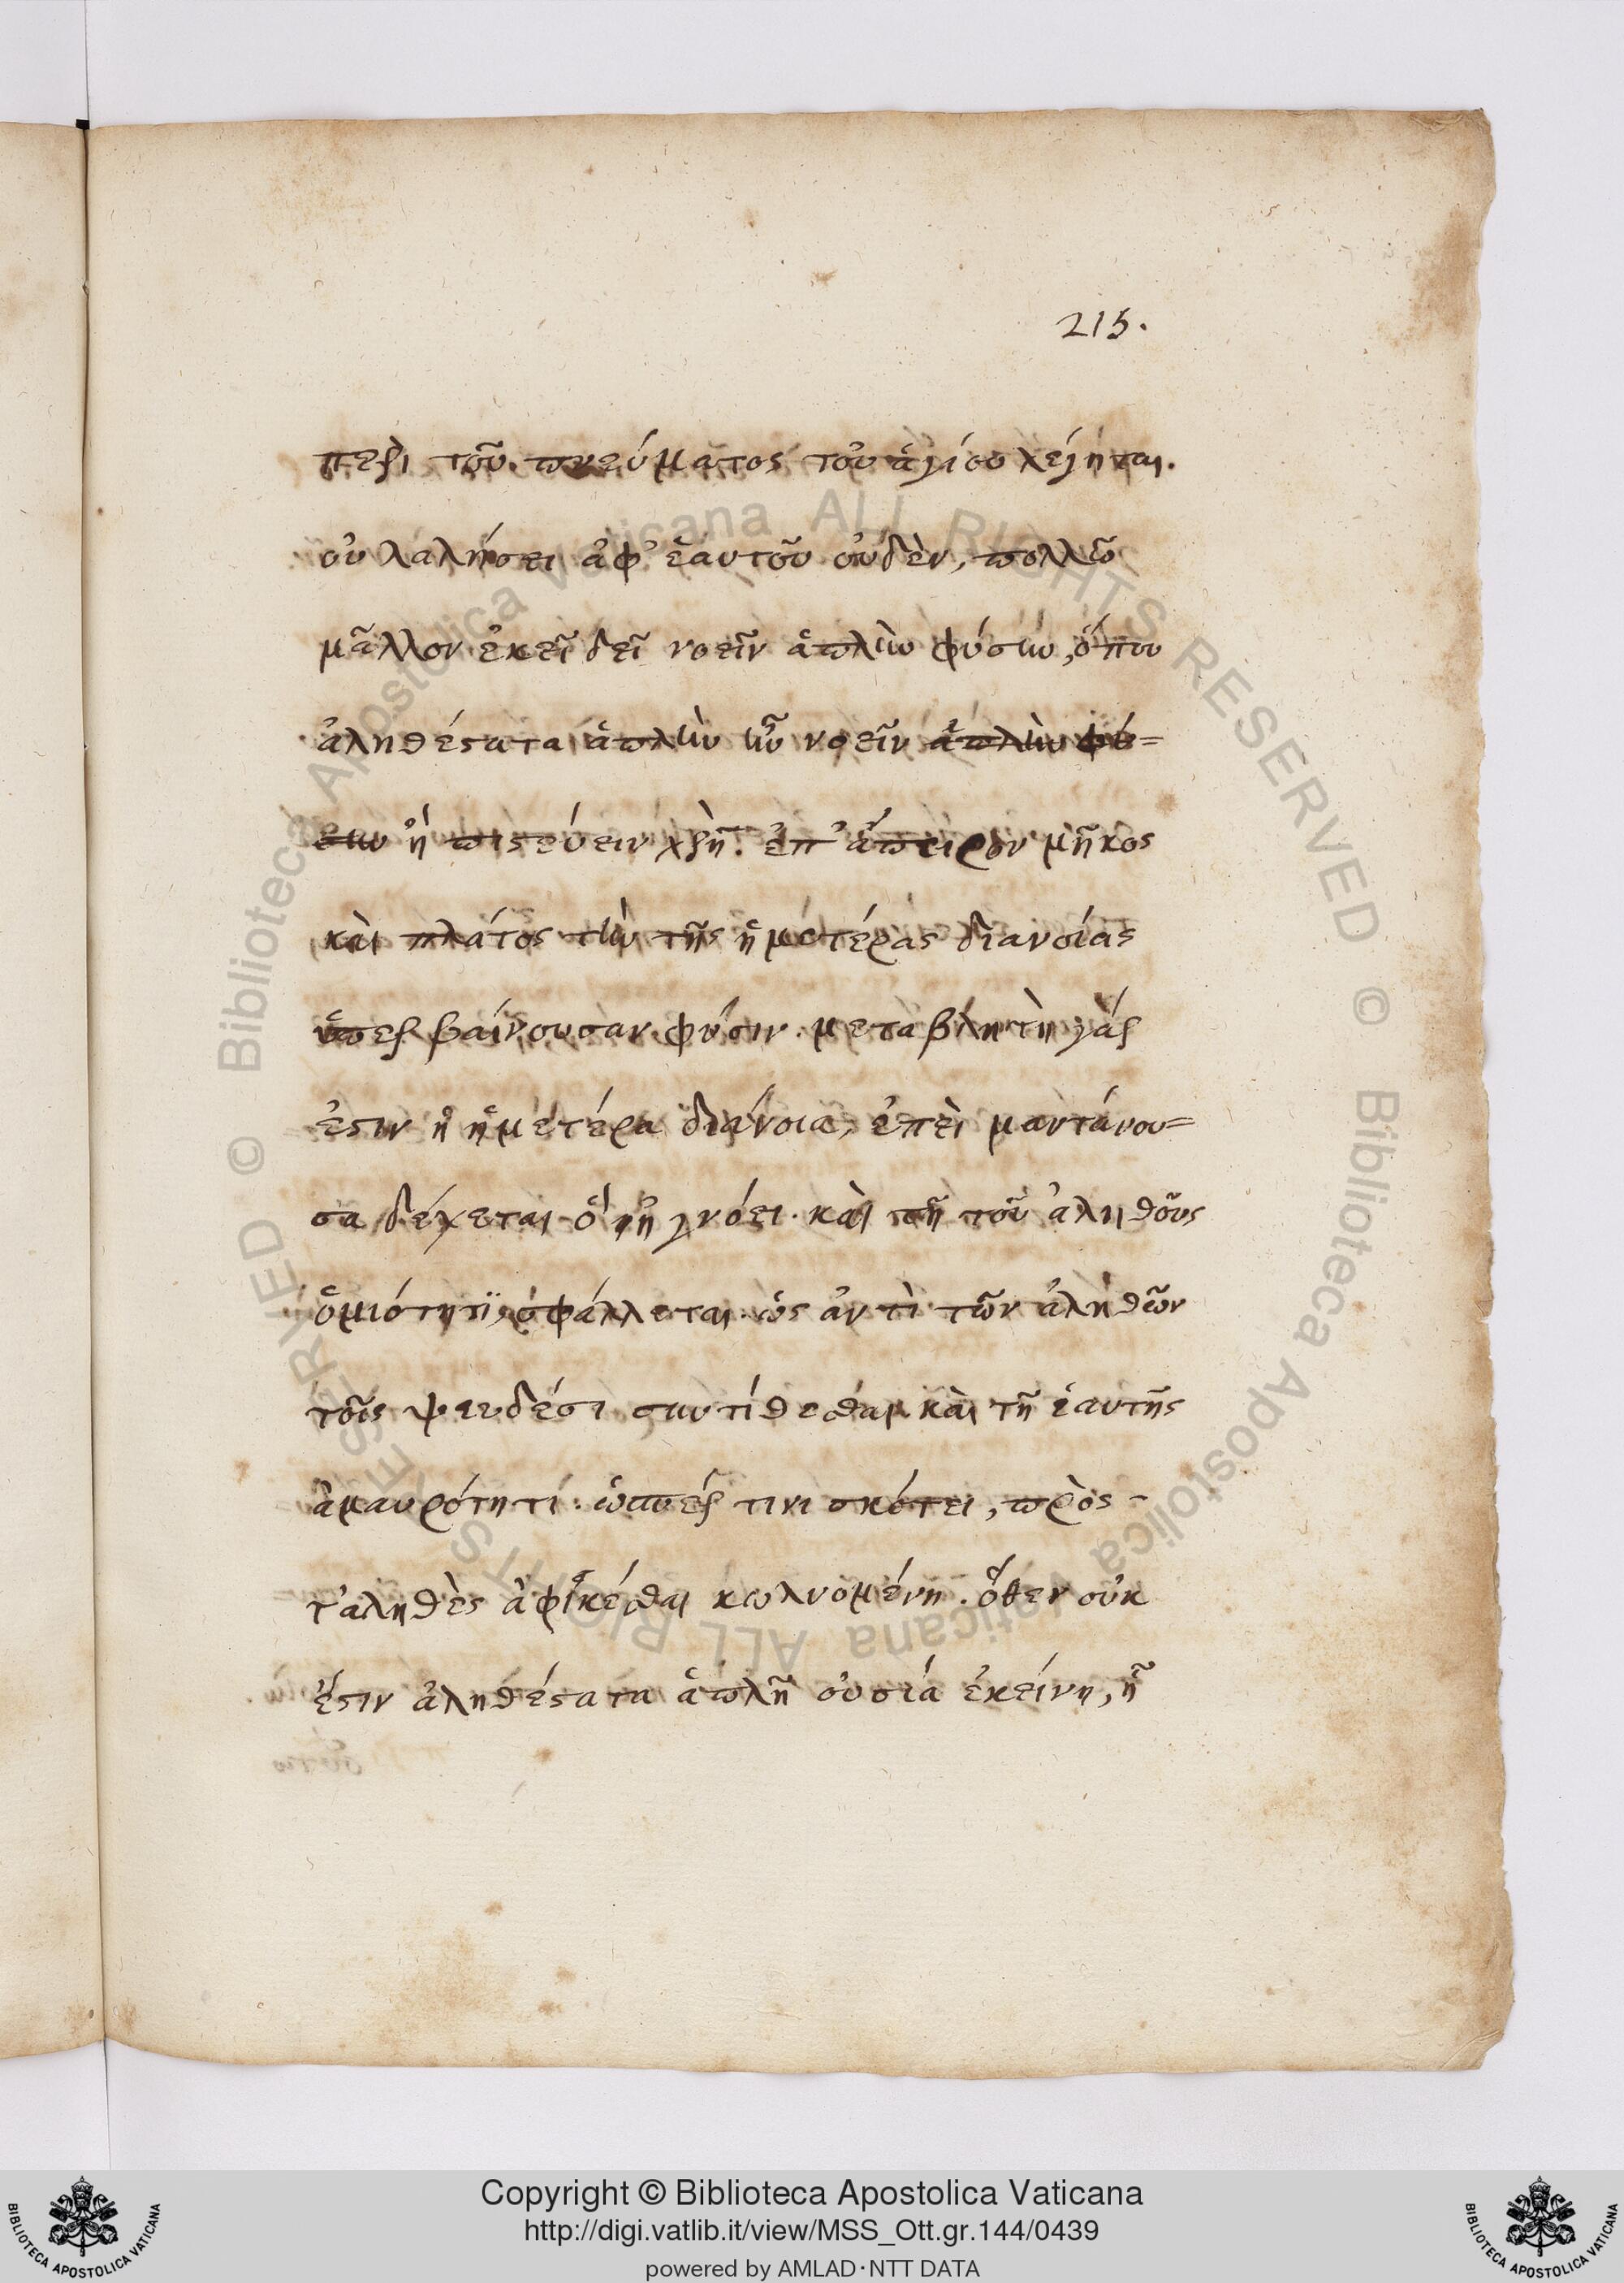 215.
περὶ τοῦ πνεύματος τοῦ ἁγίου λέγηται.
οὐ λαλήσει ἀφ' ἑαυτοῦ οὐδὲν, πολλῶ
μᾶλλον ἐκεῖ δεῖ νοεῖν ἁπλὴν φύσιν, ὅπου
ἀληθέστατα ἁπλὴν ἦν νοεῖν ἁπλὴν φύ=
σιν ἢ πιστεύειν χρὴ. ἐπ' ἄπειρον μῆκος
καὶ πλάτος τὴν τῆς ἡμετέρας διανοίας
ὑπερβαίνουσαν φύσιν. μεταβλητὴ γὰρ
ἐστιν ἡ ἡμετέρα διάνοια, ἐπεὶ μαντάνου=
σα δέχεται ὃ ἠγνόει. καὶ τῆ τοῦ ἀληθοῦς
ὁμιότητϊ, σφάλλεται ὡς ἀντὶ τῶν ἀληθῶν
τοῖς ψευδέσι συντίθεσθαι καὶ τῆ ἑαυτῆς
ἀμαυρότητί. ὥσπερ τινι σκότει, πρὸς -
τ'αληθὲς ἀφικέσθαι κωλυομένη. ὅθεν οὐκ
ἔστιν ἀληθέστατα ἁπλῆ οὐσιά ἐκείνη, ἧ
Copyright © Biblioteca Apostolica Vaticana
http://digi.vatlib.it/view/MSS_Ott.gr.144/0439
powered by AMLAD·NTT DATA
BIBLIOTECA APOSTOLICA VATICANA
BIBLIOTECA APOSTOLICA VATICANA
© Biblioteca Apostolica Vaticana ALL RIGHTS RESERVED © Biblioteca Apostolica Vaticana ALL RIGHTS RESERVED